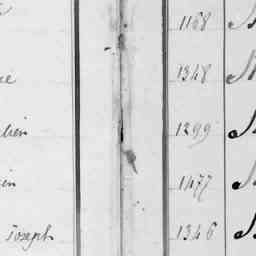 1168
ie 1348
lien 1299
ien 1477
Joseph 1346